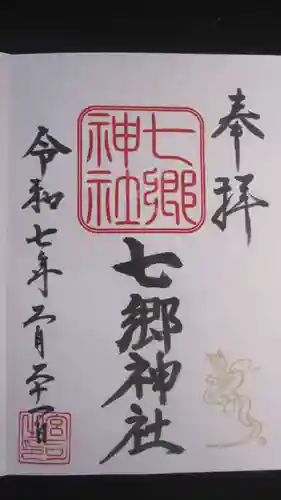 奉拝
七郷神社
七郷神社
令和七年二月二十一日